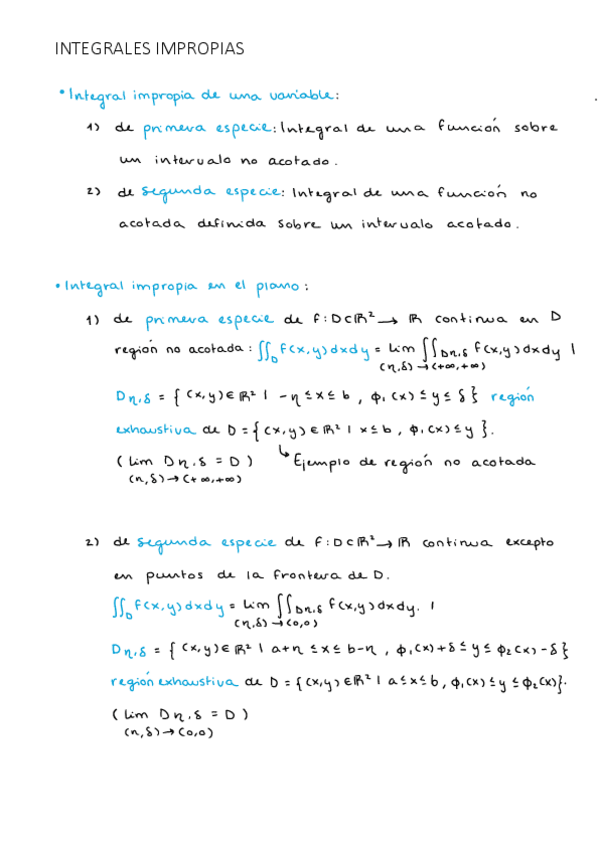 INTEGRALES IMPROPIAS
• Integral impropia de una variable:
1) de primera especie: Integral de una función sobre
un intervalo no acotado.
2) de segunda especie: Integral de una función no
acotada definida sobre un intervalo acotado.
• Integral impropia en el plano:
1) de primera especie de f: D⊂ℝ² → ℝ continua en D
región no acotada: ∬_D f(x,y)dxdy = lim ∬_{Dη,δ} f(x,y)dxdy |
(η,δ)→(+∞,+∞)
Dη,δ = { (x,y)∈ℝ² | -η ≤ x ≤ b , φ₁(x) ≤ y ≤ δ } región
exhaustiva de D = { (x,y)∈ℝ² | x ≤ b , φ₁(x) ≤ y }.
( lim Dη,δ = D ) ↳ Ejemplo de región no acotada
(η,δ)→(+∞,+∞)
2) de segunda especie de f: D⊂ℝ² → ℝ continua excepto
en puntos de la frontera de D.
∬_D f(x,y)dxdy = lim ∬_{Dη,δ} f(x,y)dxdy. |
(η,δ)→(0,0)
Dη,δ = { (x,y)∈ℝ² | a+η ≤ x ≤ b-η , φ₁(x)+δ ≤ y ≤ φ₂(x)-δ }
región exhaustiva de D = { (x,y)∈ℝ² | a ≤ x ≤ b , φ₁(x) ≤ y ≤ φ₂(x) }.
( lim Dη,δ = D )
(η,δ)→(0,0)